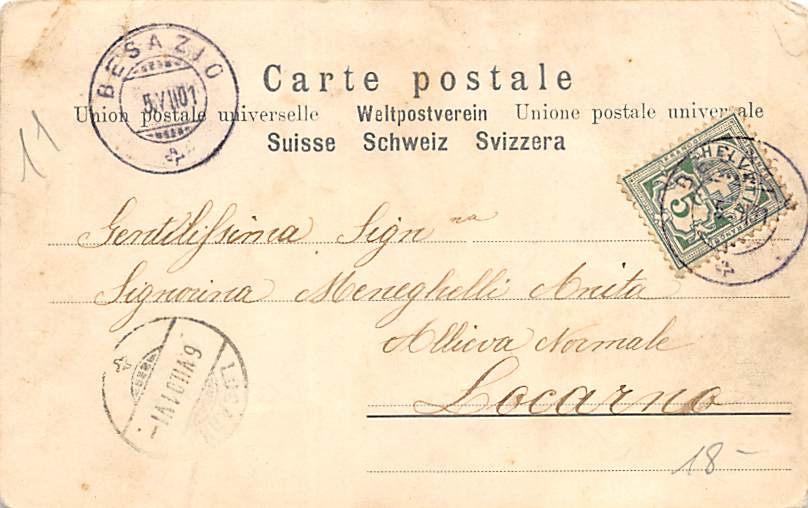 BESAZIO
5 VII 01
Carte postale
Union postale universelle Weltpostverein Unione postale universale
Suisse Schweiz Svizzera
11
HELVETIA
5
Gentilissima Sign na
Signorina Meneghelli Anita
Allieva Normale
Locarno
6 VII 01 VI-
18-